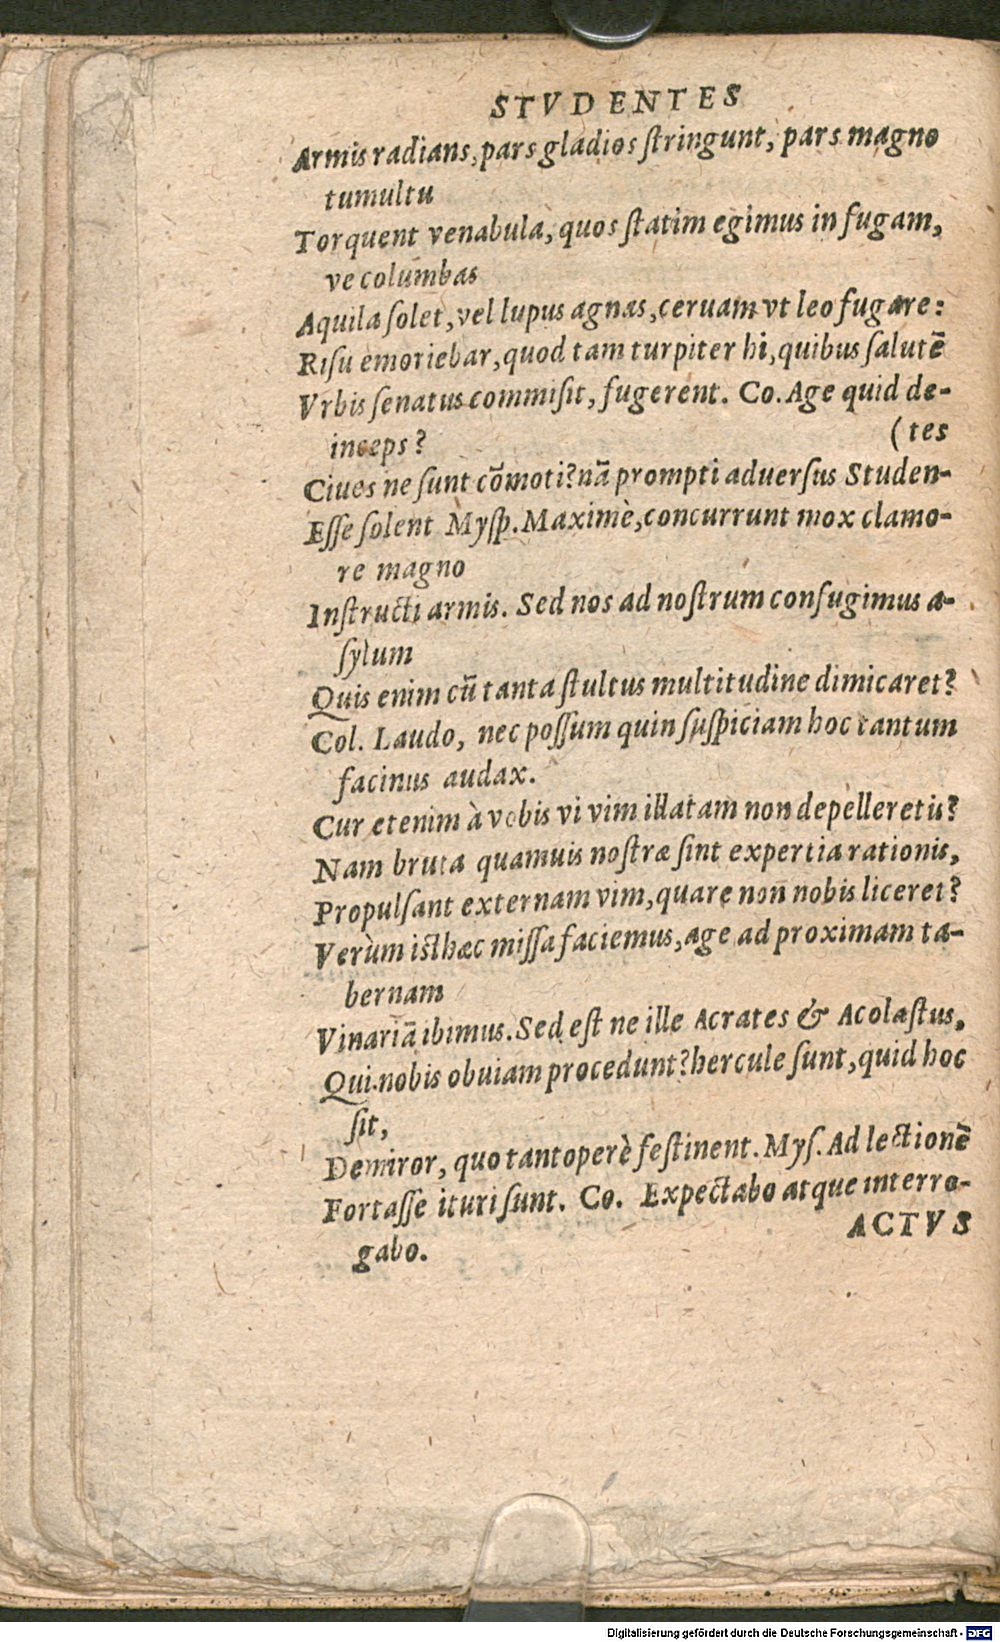 STVDENTES
Armis radians, pars gladios ſtringunt, pars magno
tumultu
Torquent venabula, quos ſtatim egimus in fugam,
ve columbas
Aquila ſolet, vel lupus agnas, ceruam vt leo fugare:
Riſu emoriebar, quod tam turpiter hi, quibus ſalutē
Vrbis ſenatus commiſit, fugerent. Co. Age quid de-
inceps? (tes
Ciues ne ſunt cōmoti? nā prompti aduerſus Studen-
Eſſe ſolent Myſp. Maximè, concurrunt mox clamo-
re magno
Inſtructi armis. Sed nos ad noſtrum confugimus a-
ſylum
Quis enim cū tanta ſtultus multitudine dimicaret?
Col. Laudo, nec poſſum quin ſuſpiciam hoc tantum
facinus audax.
Cur etenim à vobis vi vim illatam non depelleretis?
Nam bruta quamuis noſtræ ſint expertia rationis,
Propulſant externam vim, quare non nobis liceret?
Verùm iſthæc miſſa faciemus, age ad proximam ta-
bernam
Vinariā ibimus. Sed eſt ne ille Acrates & Acolaſtus,
Qui nobis obuiam procedunt? hercule ſunt, quid hoc
ſit,
Demiror, quo tantoperè feſtinent. Myſ. Ad lectionē
Fortaſſe ituri ſunt. Co. Expectabo atque interro-
gabo.
ACTVS
Digitalisierung gefördert durch die Deutsche Forschungsgemeinschaft - DFG